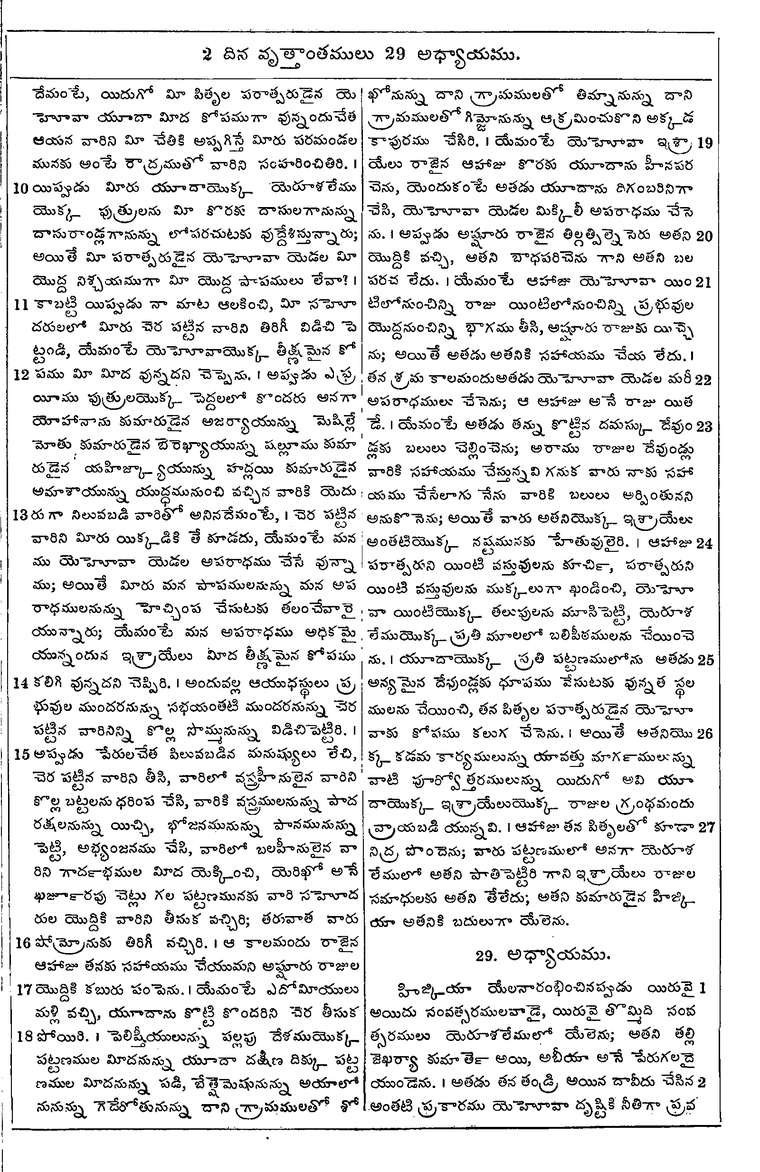 2 దిన వృత్తాంతములు 29 అధ్యాయము.
దేమంటే, యిదుగో మీ పితృల పరాత్పరుడైన యె
హెూవా యూదా మీద కోపముగా వున్నందుచేత
ఆయన వారిని మీ చేతికి అప్పగిస్తే మీరు పరమండల
మునకు అంటే రౌద్రముతో వారిని సంహరించితిరి. ।
10 యిప్పుడు మీరు యూదాయొక్క యెరూశలేము
యొక్క పుత్రులను మీ కొరకు దాసులగానున్ను
దాసురాండ్లగానున్ను లోపరచుటకు వుద్దేశిస్తున్నారు;
అయితే మీ పరాత్పరుడైన యెహెూవా యెడల మీ
యొద్ద నిశ్చయముగా మీ యొద్ద పాపములు లేవా? ।
11 కాబట్టి యిప్పుడు నా మాట ఆలకించి, మీ సహెూ
దరులలో మీరు చెర పట్టిన వారిని తిరిగీ విడిచి పె
ట్టండి, యేమంటే యెహెూవాయొక్క తీక్ష్ణమైన కో
12 పము మీ మీద వున్నదని చెప్పెను. । అప్పుడు ఎఫ్ర
యీము పుత్రులయొక్క పెద్దలలో కొందరు అనగా
యోహానాను కుమారుడైన అజర్యాయున్ను మెషిల్లే
మోతు కుమారుడైన బెరెఖ్యాయున్ను షల్లూము కుమా
రుడైన యహిజ్కాయ్యయున్ను హద్లయి కుమారుడైన
అమాశాయున్ను యుద్ధమునుంచి వచ్చిన వారికి యెదు
13 రుగా నిలువబడి వారితో అనినదేమంటే, । చెర పట్టిన
వారిని మీరు యిక్కడికి తే కూడదు, యేమంటే మన
ము యెహెూవా యెడల అపరాధము చేసే వున్నా
ము; అయితే మీరు మన పాపములనున్ను మన అప
రాధములనున్ను హెచ్చింప చేసుటకు తలంచేవారై
యున్నారు; యేమంటే మన అపరాధము అధికమై
యున్నందున ఇశ్రాయేలు మీద తీక్ష్ణమైన కోపము
14 కలిగి వున్నదని చెప్పిరి. । అందువల్ల ఆయుధస్థులు ప్ర
భువుల ముందరనున్ను సభయంతటి ముందరనున్ను చెర
పట్టిన వారినిన్ని కొల్ల సొమ్మునున్ను విడిచిపెట్టిరి. ।
15 అప్పుడు పేరులచేత పిలువబడిన మనుష్యులు లేచి,
చెర పట్టిన వారిని తీసి, వారిలో వస్త్రహీనులైన వారిని
కొల్ల బట్టలను ధరింప చేసి, వారికి వస్త్రములనున్ను పాద
రక్షలనున్ను యిచ్చి, భోజనమునున్ను పానమునున్ను
పెట్టి, అభ్యంజనము చేసి, వారిలో బలహీనులైన వా
రిని గార్దభముల మీద యెక్కించి, యెరిఖో అనే
ఖజూరారపు చెట్లు గల పట్టణమునకు వారి సహెూద
రుల యొద్దికి వారిని తీసుక వచ్చిరి; తరువాత వారు
16 షోమ్రోనుకు తిరిగీ వచ్చిరి. । ఆ కాలమందు రాజైన
ఆహాజు తనకు సహాయము చేయుమని అష్షూరు రాజుల
17 యొద్దికి కబురు పంపెను. । యేమంటే ఎదోమీయులు
మళ్లి వచ్చి, యూదాను కొట్టి కొందరిని చెర తీసుక
18 పోయిరి. । పెలిష్తీయులున్ను పల్లపు దేశముయొక్క
పట్టణముల మీదనున్ను యూదా దక్షిణ దిక్కు పట్ట
ణముల మీదనున్ను పడి, బేత్షెమెషునున్ను అయాలో
నునున్ను గెదేరోతునున్ను దాని గ్రామములతో శో
ఖోనున్ను దాని గ్రామములతో తిమ్నానున్ను దాని
గ్రామములతో గిమ్జోనున్ను ఆక్రమించుకొని అక్కడ
కాపురము చేసిరి. । యేమంటే యెహెూవా ఇశ్రా 19
యేలు రాజైన ఆహాజు కొరకు యూదాను హీనపర
చెను, యెందుకంటే అతడు యూదాను దిగంబరినిగా
చేసి, యెహెూవా యెడల మిక్కిలీ అపరాధము చేసె
ను. । అప్పుడు అష్షూరు రాజైన తిల్గత్పిల్నెసెరు అతని 20
యొద్దికి వచ్చి, అతని బాధపరిచెను గాని అతని బల
పరచ లేదు. । యేమంటే ఆహాజు యెహెూవా యిం 21
టిలోనుంచిన్ని రాజు యింటిలోనుంచిన్ని ప్రభువుల
యొద్దనుంచిన్ని భాగము తీసి, అష్షూరు రాజుకు యిచ్చె
ను; అయితే అతడు అతనికి సహాయము చేయ లేదు. ।
తన శ్రమ కాలమందు అతడు యెహెూవా యెడల మరీ 22
అపరాధములు చేసెను; ఆ ఆహాజు అనే రాజు యిత
డే. । యేమంటే అతడు తన్ను కొట్టిన దమస్కు దేవుం 23
డ్లకు బలులు చెల్లించెను; అరాము రాజుల దేవుండ్లు
వారికి సహాయము చేస్తున్నవి గనుక వారు నాకు సహా
యము చేసేలాగు నేను వారికి బలులు అర్పింతునని
అనుకొనెను; అయితే వారు అతనియొక్క ఇశ్రాయేలు
అంతటియొక్క నష్టమునకు హేతువులైరి. । ఆహాజు 24
పరాత్పరుని యింటి వస్తువులను కూర్చి, పరాత్పరుని
యింటి వస్తువులను ముక్కలుగా ఖండించి, యెహెూ
వా యింటియొక్క తలుపులను మూసిపెట్టి, యెరూశ
లేముయొక్క ప్రతి మూలలో బలిపీఠములను చేయించె
ను. । యూదాయొక్క ప్రతి పట్టణములోను అతడు 25
అన్యమైన దేవుండ్లకు ధూపము వేసుటకు వున్నత స్థల
ములను చేయించి, తన పితృల పరాత్పరుడైన యెహెూ
వాకు కోపము కలుగ చేసెను. । అయితే అతనియొ 26
క్క కడమ కార్యములున్ను యావత్తు మార్గములున్ను
వాటి పూర్వోత్తరములున్ను యిదుగో అవి యూ
దాయొక్క ఇశ్రాయేలుయొక్క రాజుల గ్రంథమందు
వ్రాయబడి యున్నవి. । ఆహాజు తన పితృలతో కూడా 27
నిద్ర పొందెను; వారు పట్టణములో అనగా యెరూశ
లేములో అతని పాతిపెట్టిరి గాని ఇశ్రాయేలు రాజుల
సమాధులకు అతని తేలేదు; అతని కుమారుడైన హిజ్కి
యా అతనికి బదులుగా యేలెను.
29. అధ్యాయము.
హిజ్కియా యేలనారంభించినప్పుడు యిరువై 1
అయిదు సంవత్సరములవాడై, యిరువై తొమ్మిది సంవ
త్సరములు యెరూశలేములో యేలెను; అతని తల్లి
జెఖర్యా కుమార్తె అయి, అబీయా అనే పేరుగలదై
యుండెను. । అతడు తన తండ్రి అయిన దావీదు చేసిన 2
అంతటి ప్రకారము యెహెూవా దృష్టికి నీతిగా ప్రవ